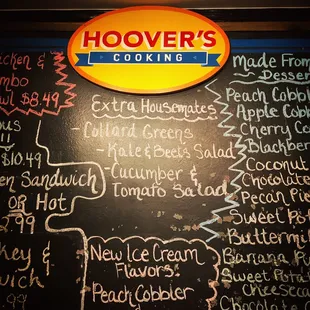 HOOVER'S
COOKING
icken &
mbo
wl $8.49
ous
11
$10.49
en Sandwich
OR Hot
2.99
key &
wich
.99
Extra Housemates
- Collard Greens
- Kale & Beets Salad
- Cucumber &
Tomato Salad
New Ice Cream
Flavors:
Peach Cobbler
Made From
Desser
Peach Cobbl
Apple Cobb
Cherry Co
Blackberr
Coconut
Chocolate
Pecan Pie
Sweet Pot
Buttermil
Banana Pu
Sweet Potat
Cheeseca
Chocolate C